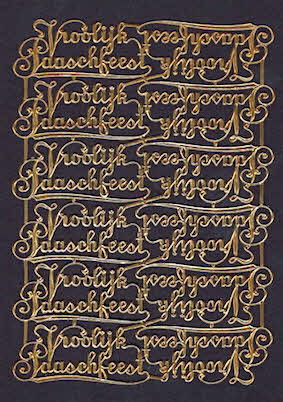 Vroolijk
Paaschfeest
Vroolijk
Paaschfeest
Vroolijk
Paaschfeest
Vroolijk
Paaschfeest
Vroolijk
Paaschfeest
Vroolijk
Paaschfeest
Vroolijk
Paaschfeest
Vroolijk
Paaschfeest
Vroolijk
Paaschfeest
Vroolijk
Paaschfeest
Vroolijk
Paaschfeest
Vroolijk
Paaschfeest